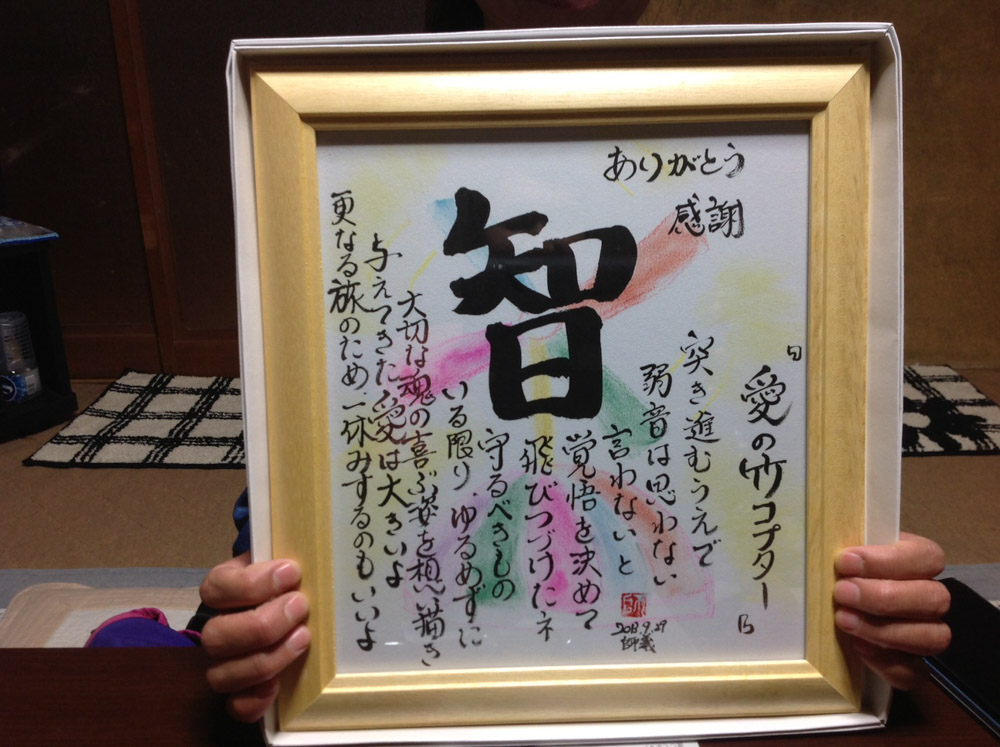 ありがとう
感謝
智
「愛の竹コプター」
突き進むうえで
弱音は思わない
言わないと
覚悟を決めて
飛びつづけたネ
守るべきもの
いる限り、ゆるめずに
大切な魂の喜ぶ姿を想い描き
与えてきた愛は大きいよ
更なる旅のため、一休みするのもいいよ